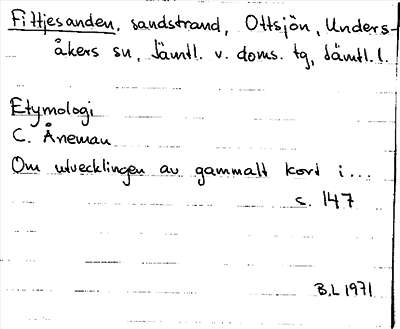 Fittjesanden, sandstrand, Ottsjön, Unders-
åkers sn, Jämtl. v. doms. tg, Jämtl. l.
Etymologi
C. Åneman
Om utvecklingen av gammalt kort i...
s. 147
B.L 1971